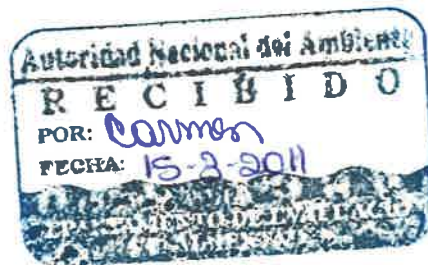 Autoridad Nacional del Ambiente
RECIBIDO
POR: Carmen
FECHA: 15-3-2011
DEPARTAMENTO DE EVALUACIÓN